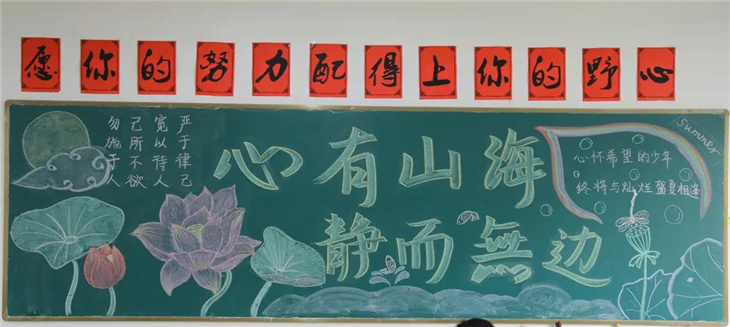 愿你的努力配得上你的野心
严于律己
宽以待人
己所不欲
勿施于人
心有山海
静而無边
Summer
心怀希望的少年
终将与灿烂盛夏相逢